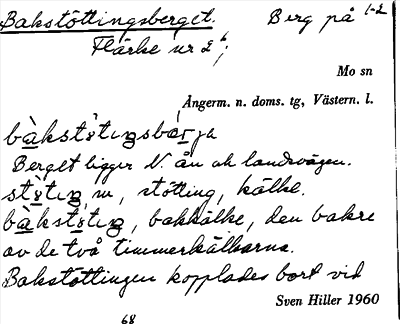 Bakstöttingsberget. Berg på 1-2
Flärke nr 2⁶;
Mo sn
Ångerm. n. doms. tg, Västern. l.
Berget ligger N. ån och landsvägen.
m, stötting, kälke.
bakkälke, den bakre
av de två timmerkälkarna.
Bakstöttingen kopplades bort vid
Sven Hiller 1960
68